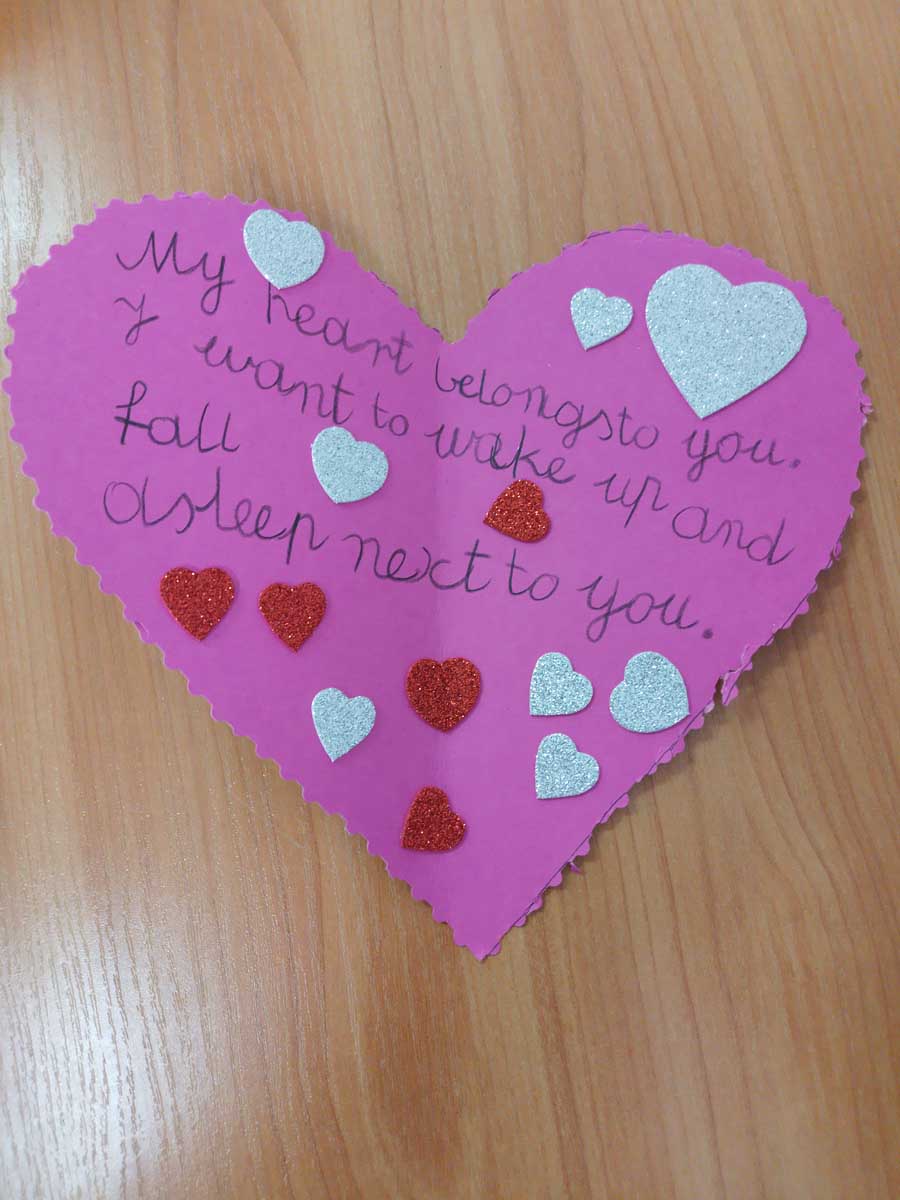 My heart belongs to you.
I want to wake up and
fall
asleep next to you.